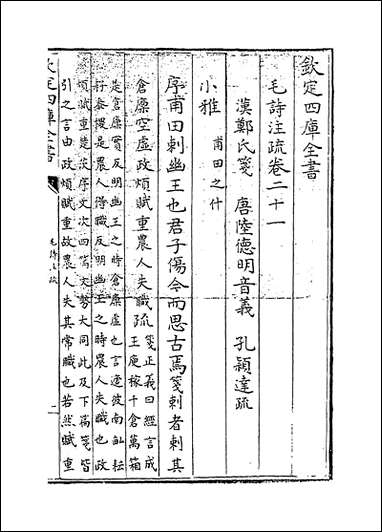 欽定四庫全書
毛詩注疏卷二十一
漢鄭氏箋 唐陸德明音義 孔穎達疏
小雅 甫田之什
序甫田刺幽王也君子傷今而思古焉箋刺者刺其
倉廪空虚政煩賦重農人失職疏箋正義曰經言成
王庾稼千倉萬箱
是倉廪實反明幽王之時倉廪虚也言適彼南畝耘
耔黍稷是農人得職反明幽王之時農人失職也政
煩賦重楚茨序文次四篇文勢大同此及下篇箋皆
引之言由政煩賦重故農人失其常職也若然賦重
欽定四庫全書
毛詩注疏
一